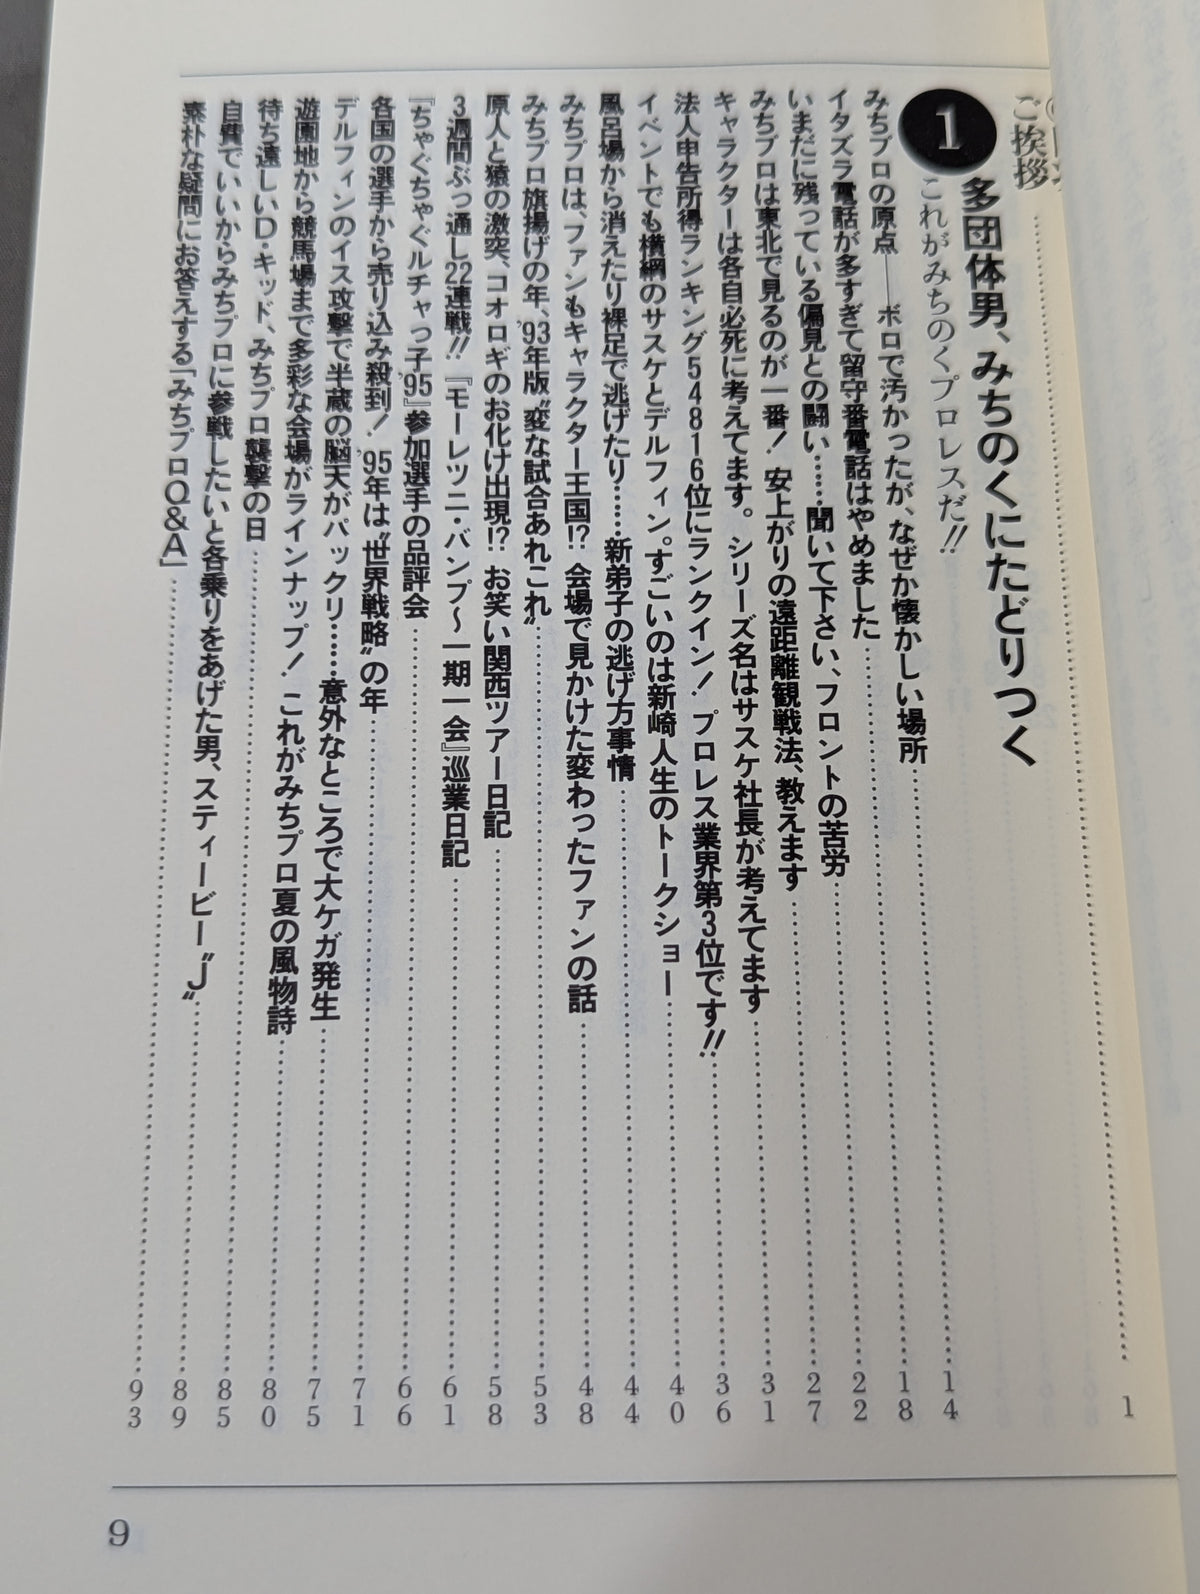 ご挨拶……1
1 多団体男、みちのくにたどりつく
これがみちのくプロレスだ!!
みちプロの原点——ボロで汚かったが、なぜか懐かしい場所……14
イタズラ電話が多すぎて留守番電話はやめました……18
いまだに残っている偏見との闘い……聞いて下さい、フロントの苦労……22
みちプロは東北で見るのが一番! 安上がりの遠距離観戦法、教えます……27
キャラクターは各自必死に考えてます。シリーズ名はサスケ社長が考えてます……31
法人申告所得ランキング54816位にランクイン! プロレス業界第3位です!!……36
イベントでも横綱のサスケとデルフィン。すごいのは新崎人生のトークショー……40
風呂場から消えたり裸足で逃げたり……新弟子の逃げ方事情……44
みちプロは、ファンもキャラクター王国!? 会場で見かけた変わったファンの話……48
みちプロ旗揚げの年、'93年版〝変な試合あれこれ〟……53
原人と猿の激突、コオロギのお化け出現!? お笑い関西ツアー日記……58
3週間ぶっ通し22連戦!!『モーレツニ・バンプ〜一期一会』巡業日記……61
『ちゃぐちゃぐルチャっ子'95』参加選手の品評会……66
各国の選手から売り込み殺到! '95年は〝世界戦略〟の年……71
デルフィンのイス攻撃で半蔵の脳天がパックリ……意外なところで大ケガ発生……75
遊園地から競馬場まで多彩な会場がラインナップ! これがみちプロ夏の風物詩……80
待ち遠しいD・キッド、みちプロ襲撃の日……85
自費でいいからみちプロに参戦したいと名乗りをあげた男、スティービー〝J〟……89
素朴な疑問にお答えする「みちプロQ&A」……93
9